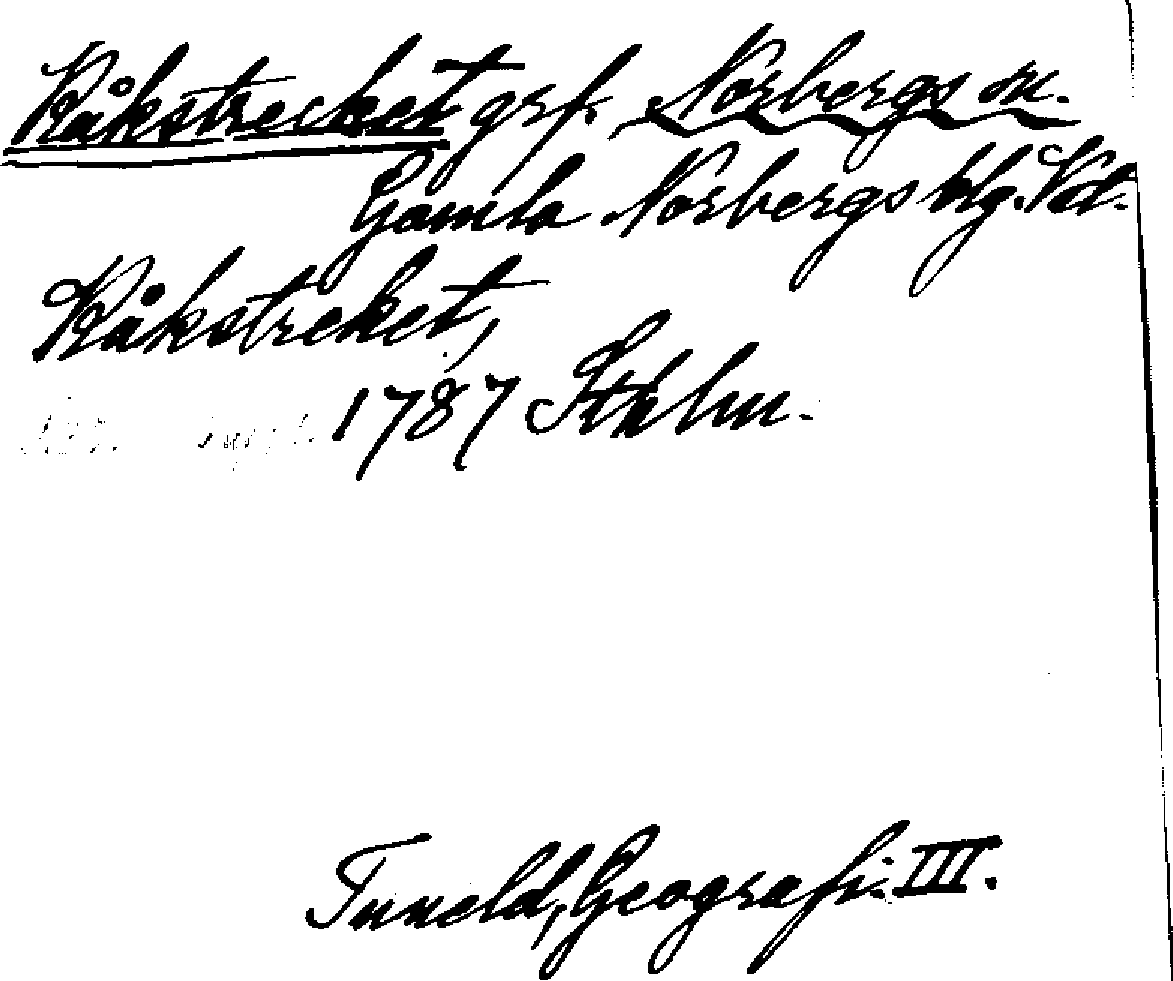 Råkstrecket grf. Norbergs sn.
Gamla Norbergs blg. Vstl.
Råkstreket,
1787 Sthlm.
Tuneld, Geografi III.